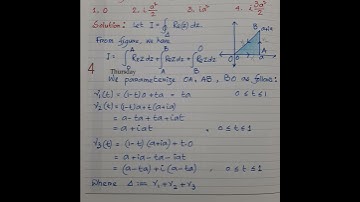 1. 0 2. i a²/2 3. ia² 4. i 3a²/2
Solution: Let I = ∮ Re(z) dz.
From figure, we have
I = ∫ Re z dz + ∫ Re z dz + ∫ Re z dz
O A B
A B O
B a+ia
O a A
4
Thursday
We parameterize OA, AB, BO as follows:
γ₁(t) = (1-t)0 + ta = ta 0 ≤ t ≤ 1
γ₂(t) = (1-t)a + t(a+ia)
= a - ta + ta + iat
= a + iat , 0 ≤ t ≤ 1
γ₃(t) = (1-t)(a+ia) + t·0
= a + ia - ta - iat
= (a-ta) + i(a-ta) , 0 ≤ t ≤ 1
Where Δ := γ₁ + γ₂ + γ₃